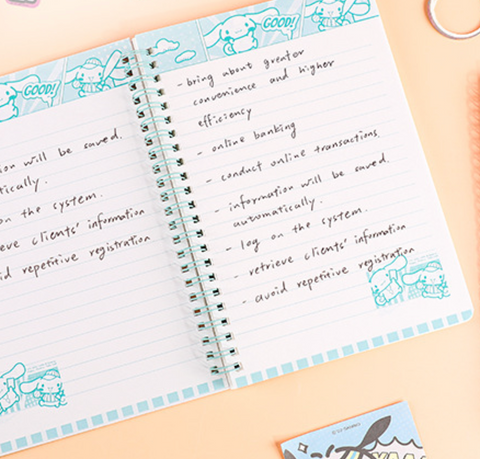 GOOD!
ion will be saved.
tically.
on the system.
eve clients' information
id repetitive registration
GOOD!
- bring about greator
convenience and higher
efficiency
- online banking
- conduct online transactions.
- information will be saved.
automatically.
- log on the system.
- retrieve clients' information
- avoid repetitive registration